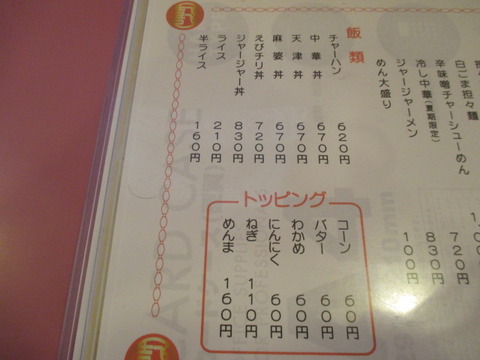 白ごま担々麺
辛味噌チャーシューめん 720円
冷し中華(夏期限定) 830円
ジャージャーメン
めん大盛り 100円
飯類
チャーハン 620円
中華丼 670円
天津丼 670円
麻婆丼 670円
えびチリ丼 720円
ジャージャー丼 830円
ライス 210円
半ライス 160円
トッピング
コーン 60円
バター 60円
わかめ 60円
にんにく 60円
ねぎ 110円
めんま 160円